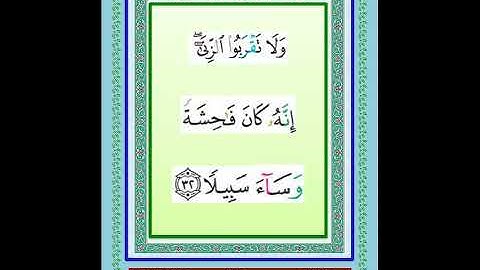 وَلَا تَقْرَبُوا۟ ٱلزِّنَىٰٓ ۖ
إِنَّهُۥ كَانَ فَـٰحِشَةً
وَسَآءَ سَبِيلًا ﴿٣٢﴾